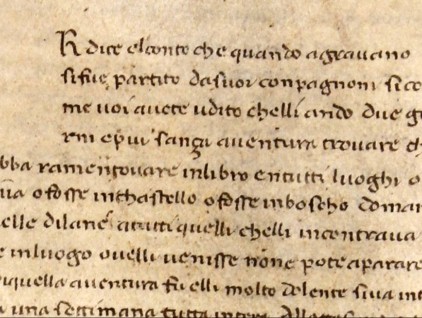 R dice elconto che quando agravano
sifue partito dasuoi conpagnoni sico
me voi avete udito chelli ando due g
rni epiu sanza aventura trovare ch
bba ramentovare inlibro entutti luoghi o
va ofosse inchastello ofosse inboscho doman
elle dilanc atutti quelli chelli incontrava
e inluogo ovelli venisse none pote aparare
quella aventura fu elli molto dolente siva int
una settimana tutta intera